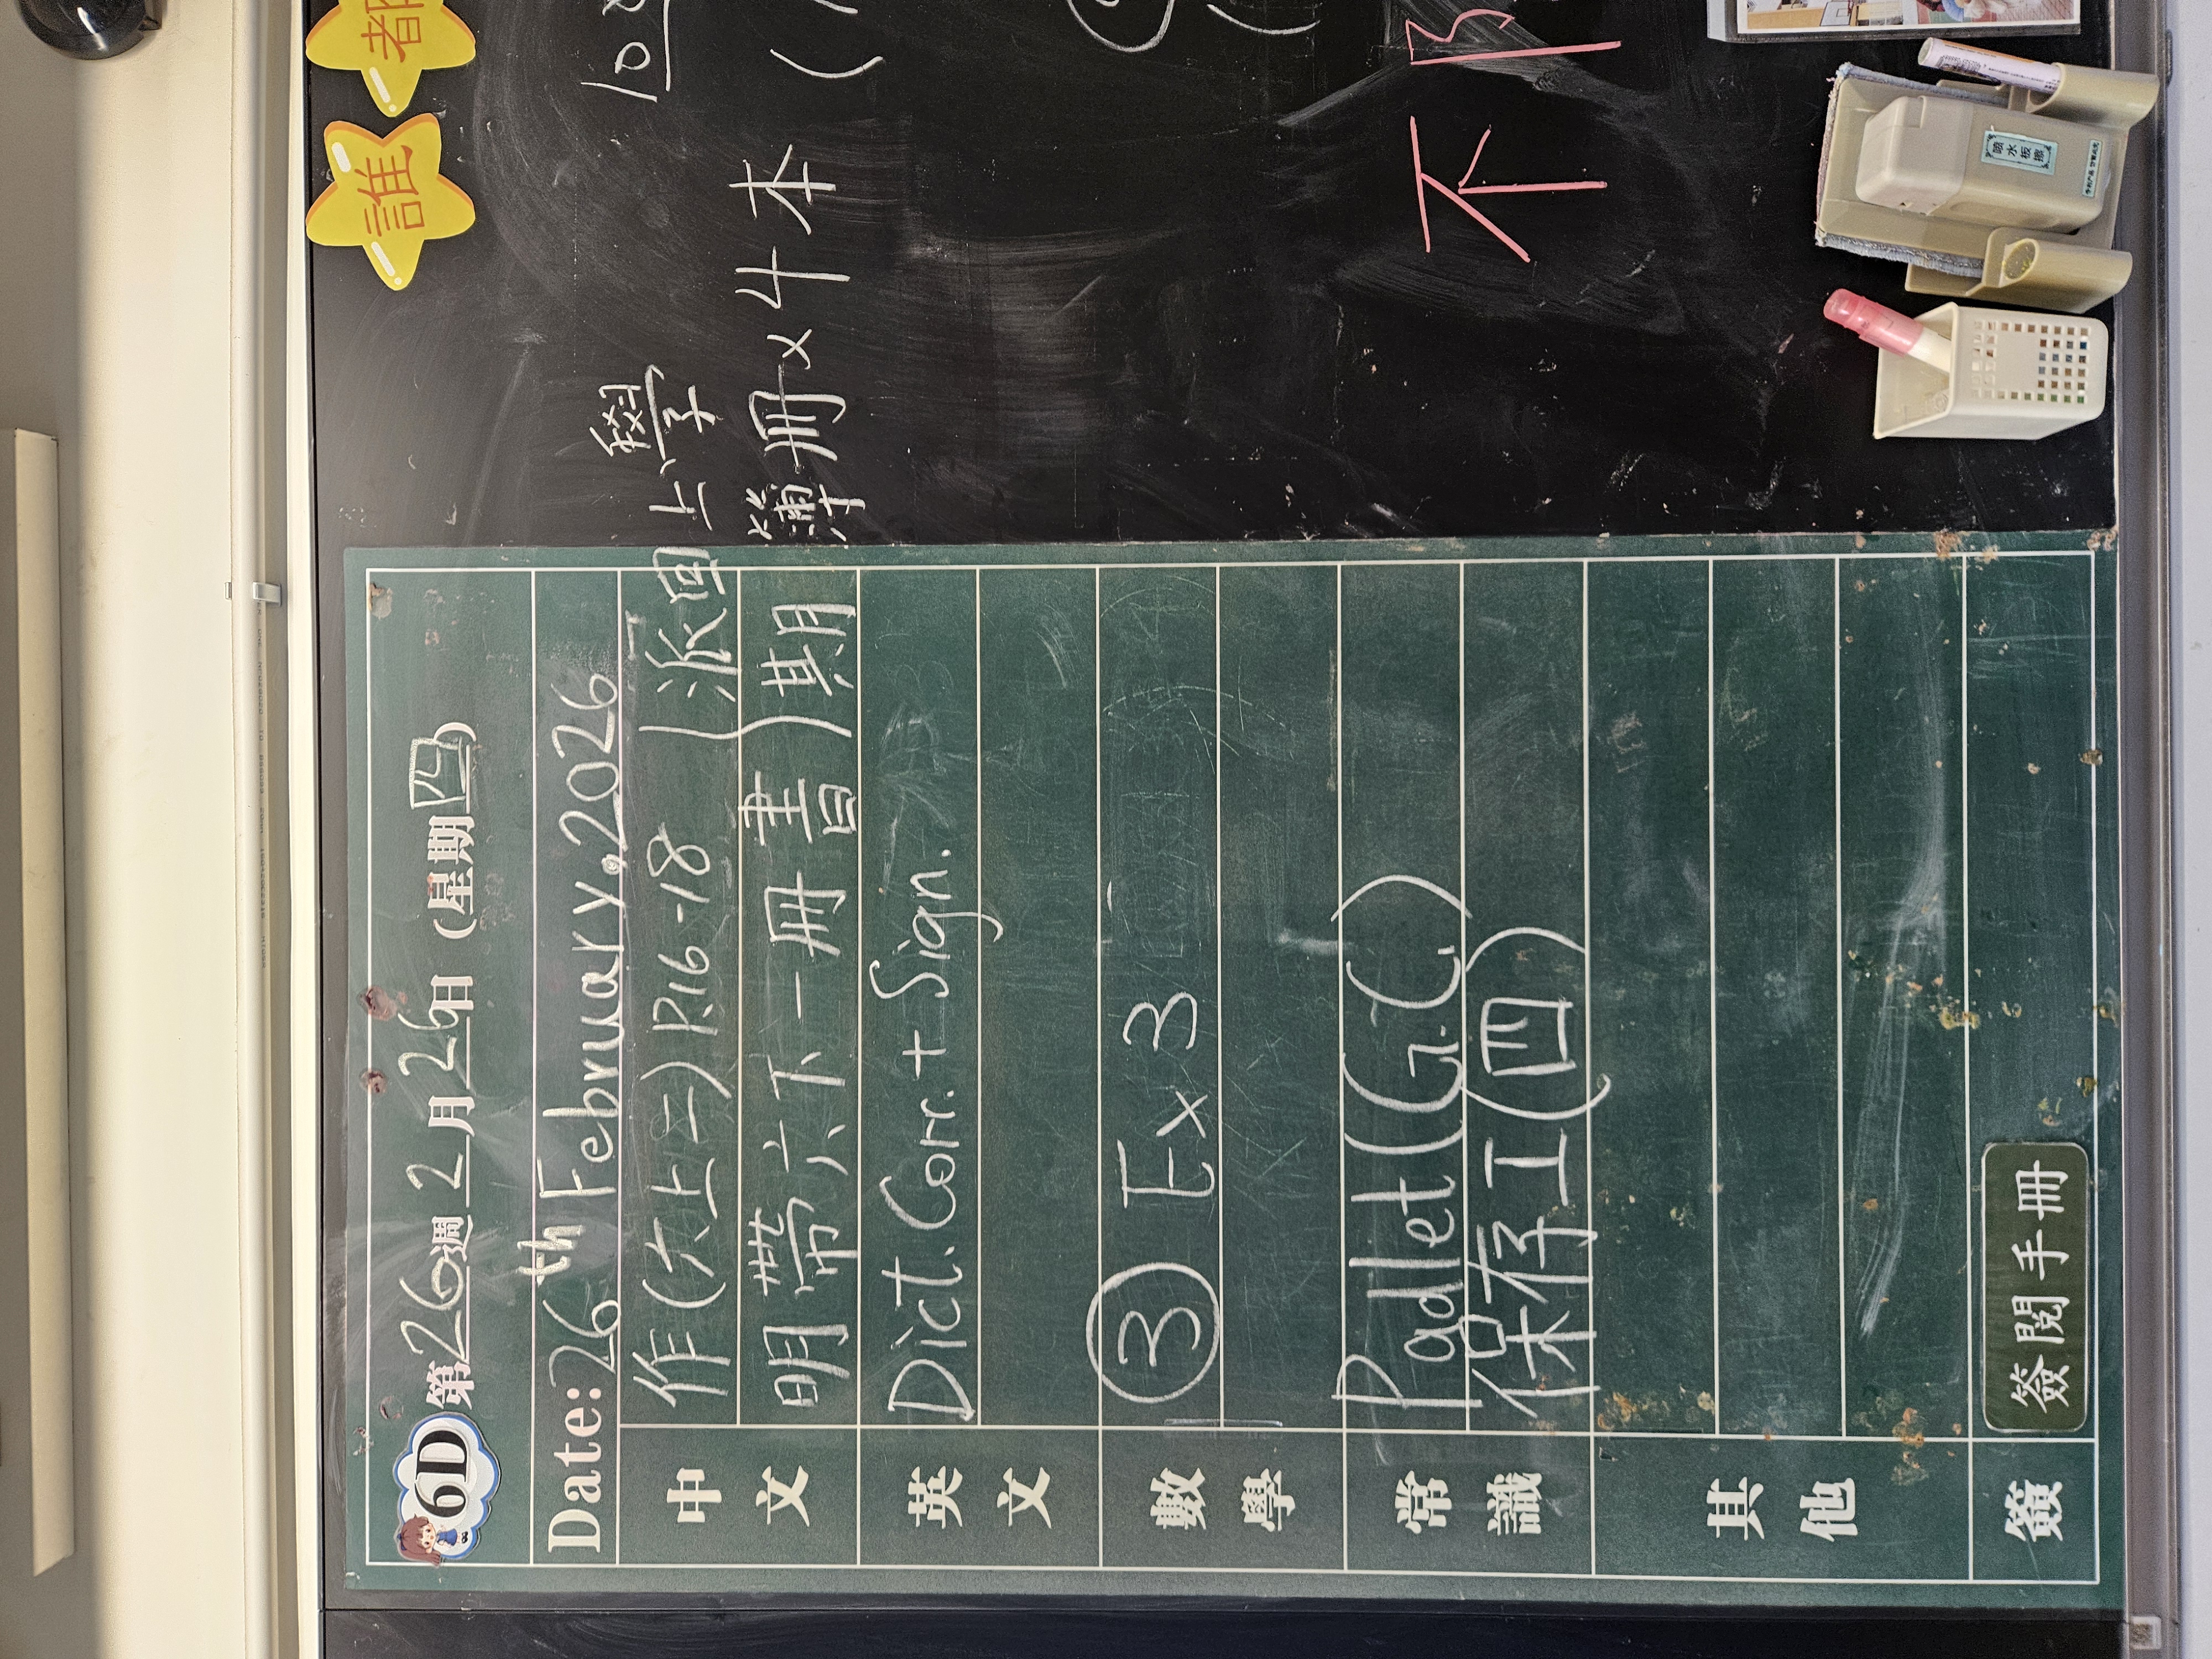 6D 第26週 2月26日 (星期四)
Date: 26th February, 2026
中文
作(六上二) P.16-18 (派回上學
明帶六下一冊書)期簿冊x4本
英文
Dict. Corr. + Sign.
數學
③ Ex 3
常識
Padlet (G.C.)
保存工(四)
其他
簽
簽閱手冊
誰都
不
噴水板擦